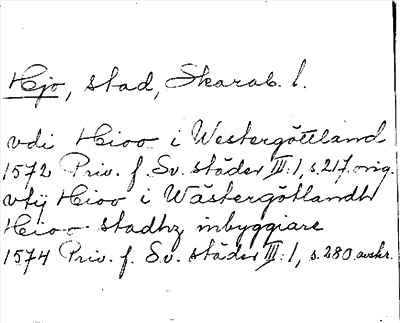 Hjo, stad, Skarab. l.
vdi Hioo i Westergöttland
1572 Priv. f. Sv. städer III:1, s. 217. orig.
vtij Hioo i Wästergötlandh
Hioo stadhz inbyggiare
1574 Priv. f. Sv. städer III:1, s. 280. avskr.